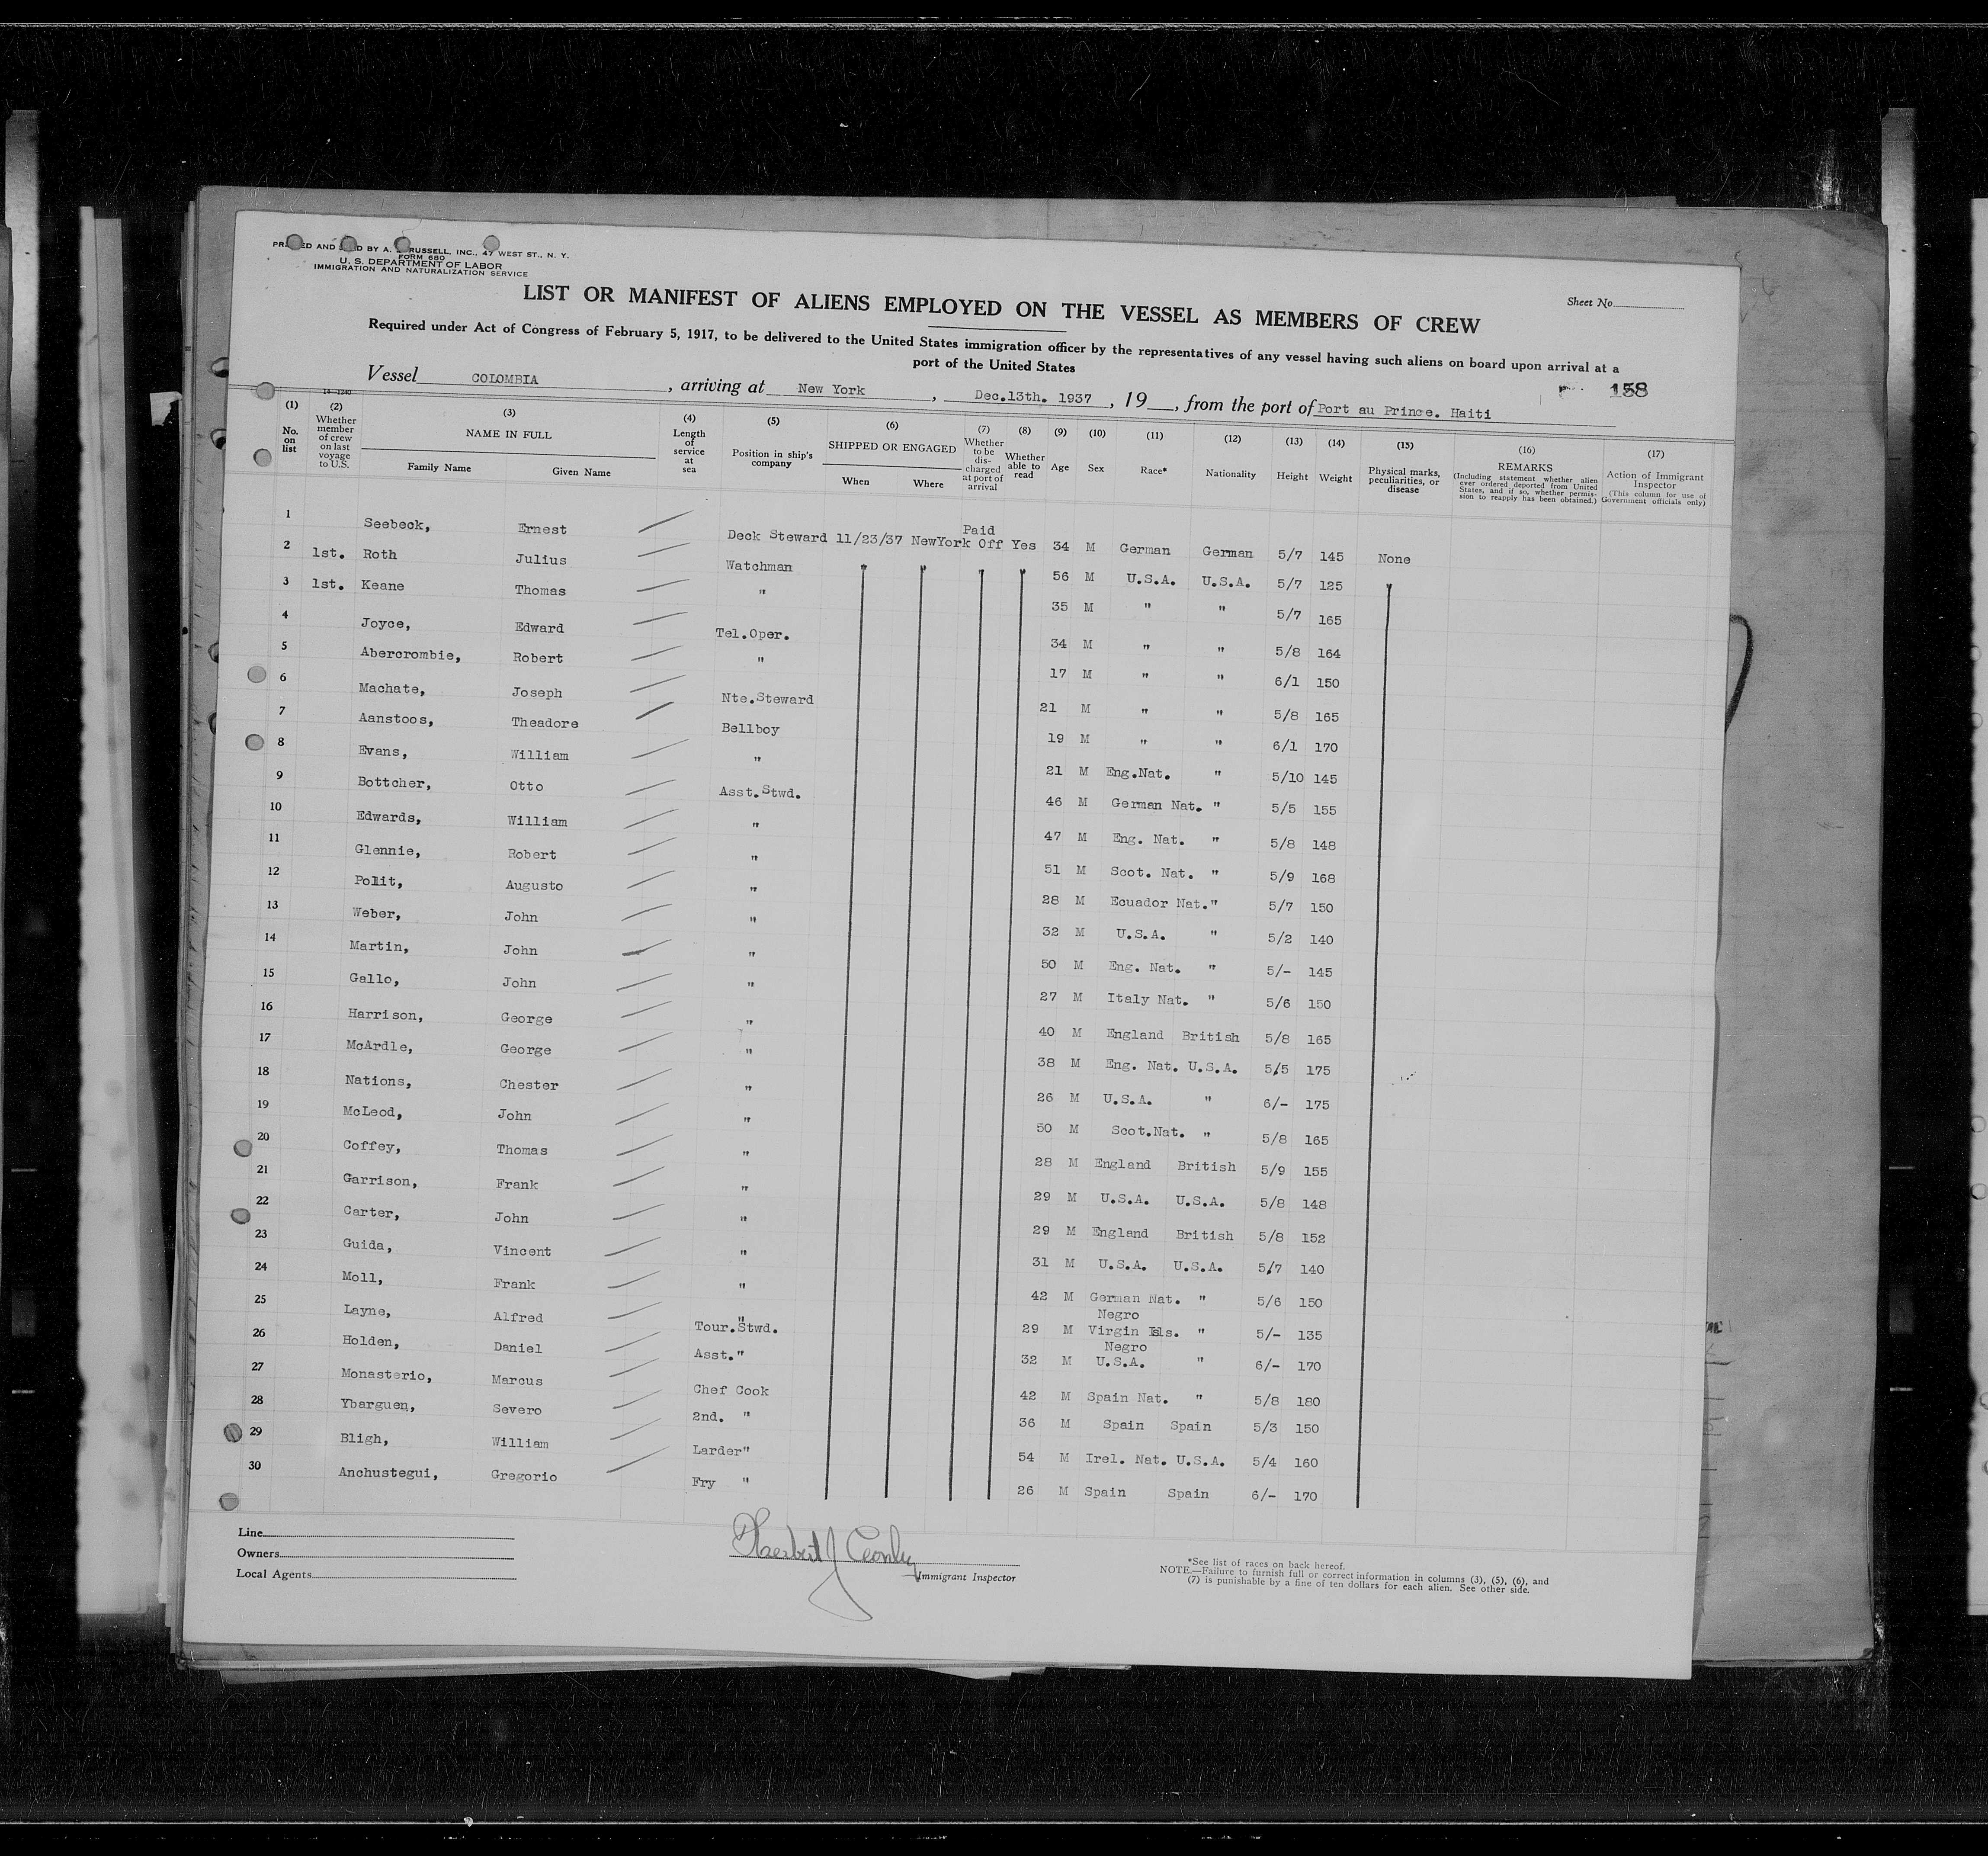 PRINTED AND SOLD BY A. RUSSELL, INC., 47 WEST ST., N. Y.
FORM 680
U. S. DEPARTMENT OF LABOR
IMMIGRATION AND NATURALIZATION SERVICE
Sheet No.
LIST OR MANIFEST OF ALIENS EMPLOYED ON THE VESSEL AS MEMBERS OF CREW
Required under Act of Congress of February 5, 1917, to be delivered to the United States immigration officer by the representatives of any vessel having such aliens on board upon arrival at a
port of the United States
158
Vessel COLOMBIA, arriving at New York, Dec.13th. 1937, 19__, from the port of Port au Prince. Haiti
14-1240
(1) (2) (3) (4) (5) (6) (7) (8) (9) (10) (11) (12) (13) (14) (15) (16) (17)
No. on list Whether member of crew on last voyage to U.S. NAME IN FULL Family Name Given Name Length of service at sea Position in ship's company SHIPPED OR ENGAGED When Where Whether to be discharged at port of arrival Whether able to read Age Sex Race* Nationality Height Weight Physical marks, peculiarities, or disease REMARKS (Including statement whether alien ever ordered deported from United States, and if so, whether permission to reapply has been obtained.) Action of Immigrant Inspector (This column for use of Government officials only)
1 Seebeck, Ernest Deck Steward 11/23/37 NewYork Paid Off Yes 34 M German German 5/7 145 None
2 1st. Roth Julius Watchman " " " " 56 M U.S.A. U.S.A. 5/7 125 "
3 1st. Keane Thomas " 35 M " " 5/7 165
4 Joyce, Edward Tel.Oper. 34 M " " 5/8 164
5 Abercrombie, Robert " 17 M " " 6/1 150
6 Machate, Joseph Nte.Steward 21 M " " 5/8 165
7 Aanstoos, Theadore Bellboy 19 M " " 6/1 170
8 Evans, William " 21 M Eng.Nat. " 5/10 145
9 Bottcher, Otto Asst.Stwd. 46 M German Nat. " 5/5 155
10 Edwards, William " 47 M Eng. Nat. " 5/8 148
11 Glennie, Robert " 51 M Scot. Nat. " 5/9 168
12 Polit, Augusto " 28 M Ecuador Nat." 5/7 150
13 Weber, John " 32 M U.S.A. " 5/2 140
14 Martin, John " 50 M Eng. Nat. " 5/- 145
15 Gallo, John " 27 M Italy Nat. " 5/6 150
16 Harrison, George " 40 M England British 5/8 165
17 McArdle, George " 38 M Eng. Nat. U.S.A. 5/5 175
18 Nations, Chester " 26 M U.S.A. " 6/- 175
19 McLeod, John " 50 M Scot.Nat. " 5/8 165
20 Coffey, Thomas " 28 M England British 5/9 155
21 Garrison, Frank " 29 M U.S.A. U.S.A. 5/8 148
22 Carter, John " 29 M England British 5/8 152
23 Guida, Vincent " 31 M U.S.A. U.S.A. 5/7 140
24 Moll, Frank " 42 M German Nat. " 5/6 150
25 Layne, Alfred Tour."Stwd. 29 M Negro Virgin Isls. " 5/- 135
26 Holden, Daniel Asst." 32 M Negro U.S.A. " 6/- 170
27 Monasterio, Marcus Chef Cook 42 M Spain Nat. " 5/8 180
28 Ybarguen, Severo 2nd. " 36 M Spain Spain 5/3 150
29 Bligh, William Larder" 54 M Irel. Nat. U.S.A. 5/4 160
30 Anchustegui, Gregorio Fry " 26 M Spain Spain 6/- 170
Line
Owners
Local Agents
Herbert J
Immigrant Inspector
*See list of races on back hereof.
NOTE.—Failure to furnish full or correct information in columns (3), (5), (6), and
(7) is punishable by a fine of ten dollars for each alien. See other side.